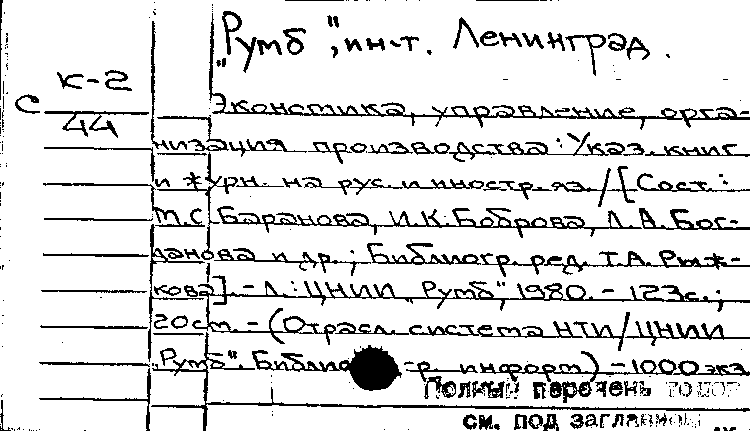 „Румб“, ин-т. Ленинград.
К-2
С
44
Экономика, управление, орга-
низация производства: Указ. книг
и журн. на рус. и иностр. яз. / [Сост.:
Т.С. Баранова, И.К. Боброва, Л.А. Бог-
данова и др.; Библиогр. ред. Т.А. Рыж-
кова]. - Л.: ЦНИИ „Румб“, 1980. - 123с.;
20см. - (Отрасл. система НТИ/ЦНИИ
„Румб“. Библиогр. информ) - 1000 экз
Полный перечень томов
см. под заглавном